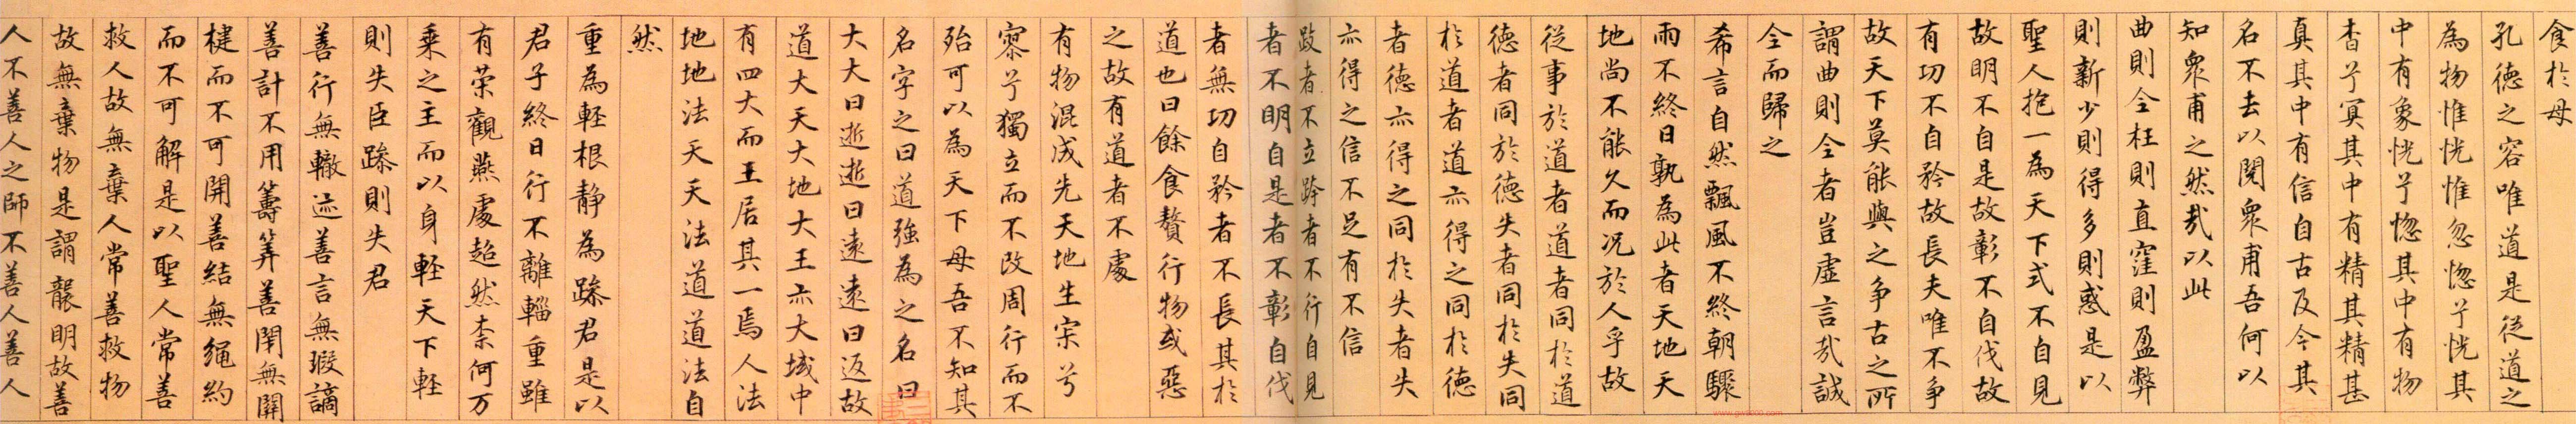 食於母
孔德之容唯道是從道之
為物惟恍惟忽惚兮恍其
中有象恍兮惚其中有物
杳兮冥其中有精其精甚
真其中有信自古及今其
名不去以閱眾甫吾何以
知眾甫之然哉以此
曲則全枉則直窪則盈弊
則新少則得多則惑是以
聖人抱一為天下式不自見
故明不自是故彰不自伐故
有功不自矜故長夫唯不爭
故天下莫能與之爭古之所
謂曲則全者豈虛言哉誠
全而歸之
希言自然飄風不終朝驟
雨不終日孰為此者天地天
地尚不能久而况於人乎故
從事於道者道者同於道
德者同於德失者同於失同
於道者道亦得之同於德
者德亦得之同於失者失
亦得之信不足有不信
跂者不立跨者不行自見
者不明自是者不彰自伐
者無功自矜者不長其於
道也曰餘食贅行物或惡
之故有道者不處
有物混成先天地生宗兮
寥兮獨立而不改周行而不
殆可以為天下母吾不知其
名字之曰道強為之名曰
大大曰逝逝曰遠遠曰返故
道大天大地大王亦大域中
有四大而王居其一焉人法
地地法天天法道道法自
然
重為輕根靜為躁君是以
君子終日行不離輜重雖
有荣觀燕處超然柰何万
乘之主而以身輕天下輕
則失臣躁則失君
善行無轍迹善言無瑕謫
善計不用籌筭善閉無關
楗而不可開善結無繩約
而不可解是以聖人常善
救人故無棄人常善救物
故無棄物是謂襲明故善
人不善人之師不善人善人